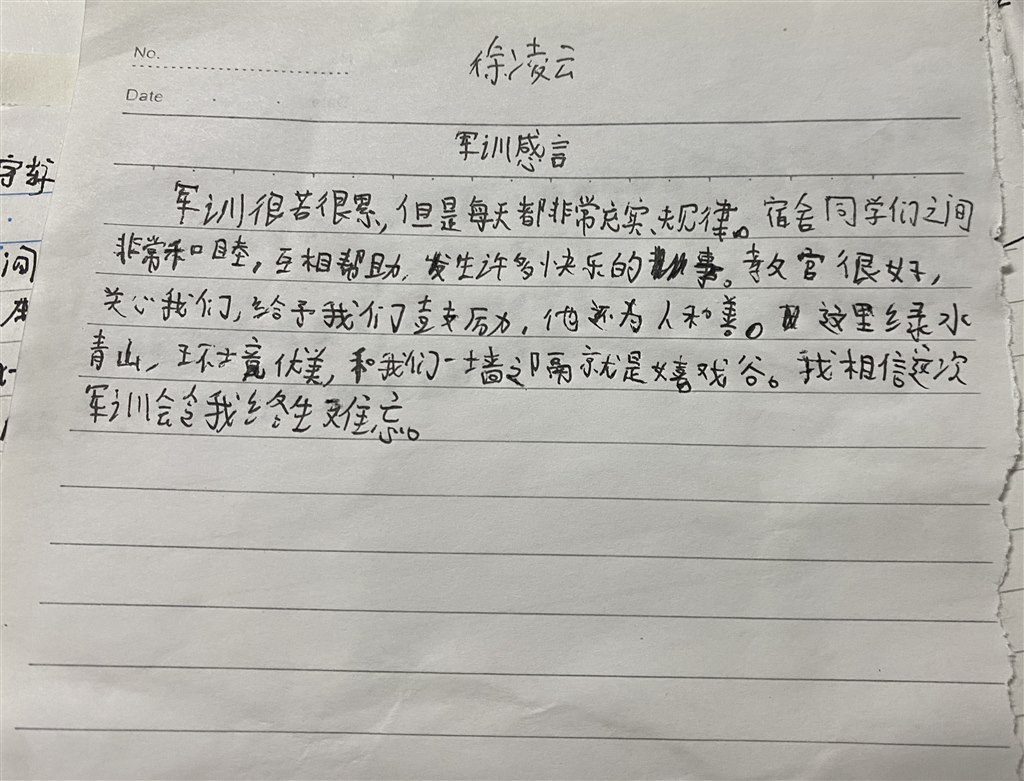 No.
徐凌云
Date
军训感言
军训很苦很累,但是每天都非常充实、规律。宿舍同学们之间
非常和睦,互相帮助,发生许多快乐的事。教官很好,
关心我们,给予我们鼓励,他还为人和善。这里绿水
青山,环境优美,和我们一墙之隔就是嬉戏谷。我相信这次
军训会令我终生难忘。